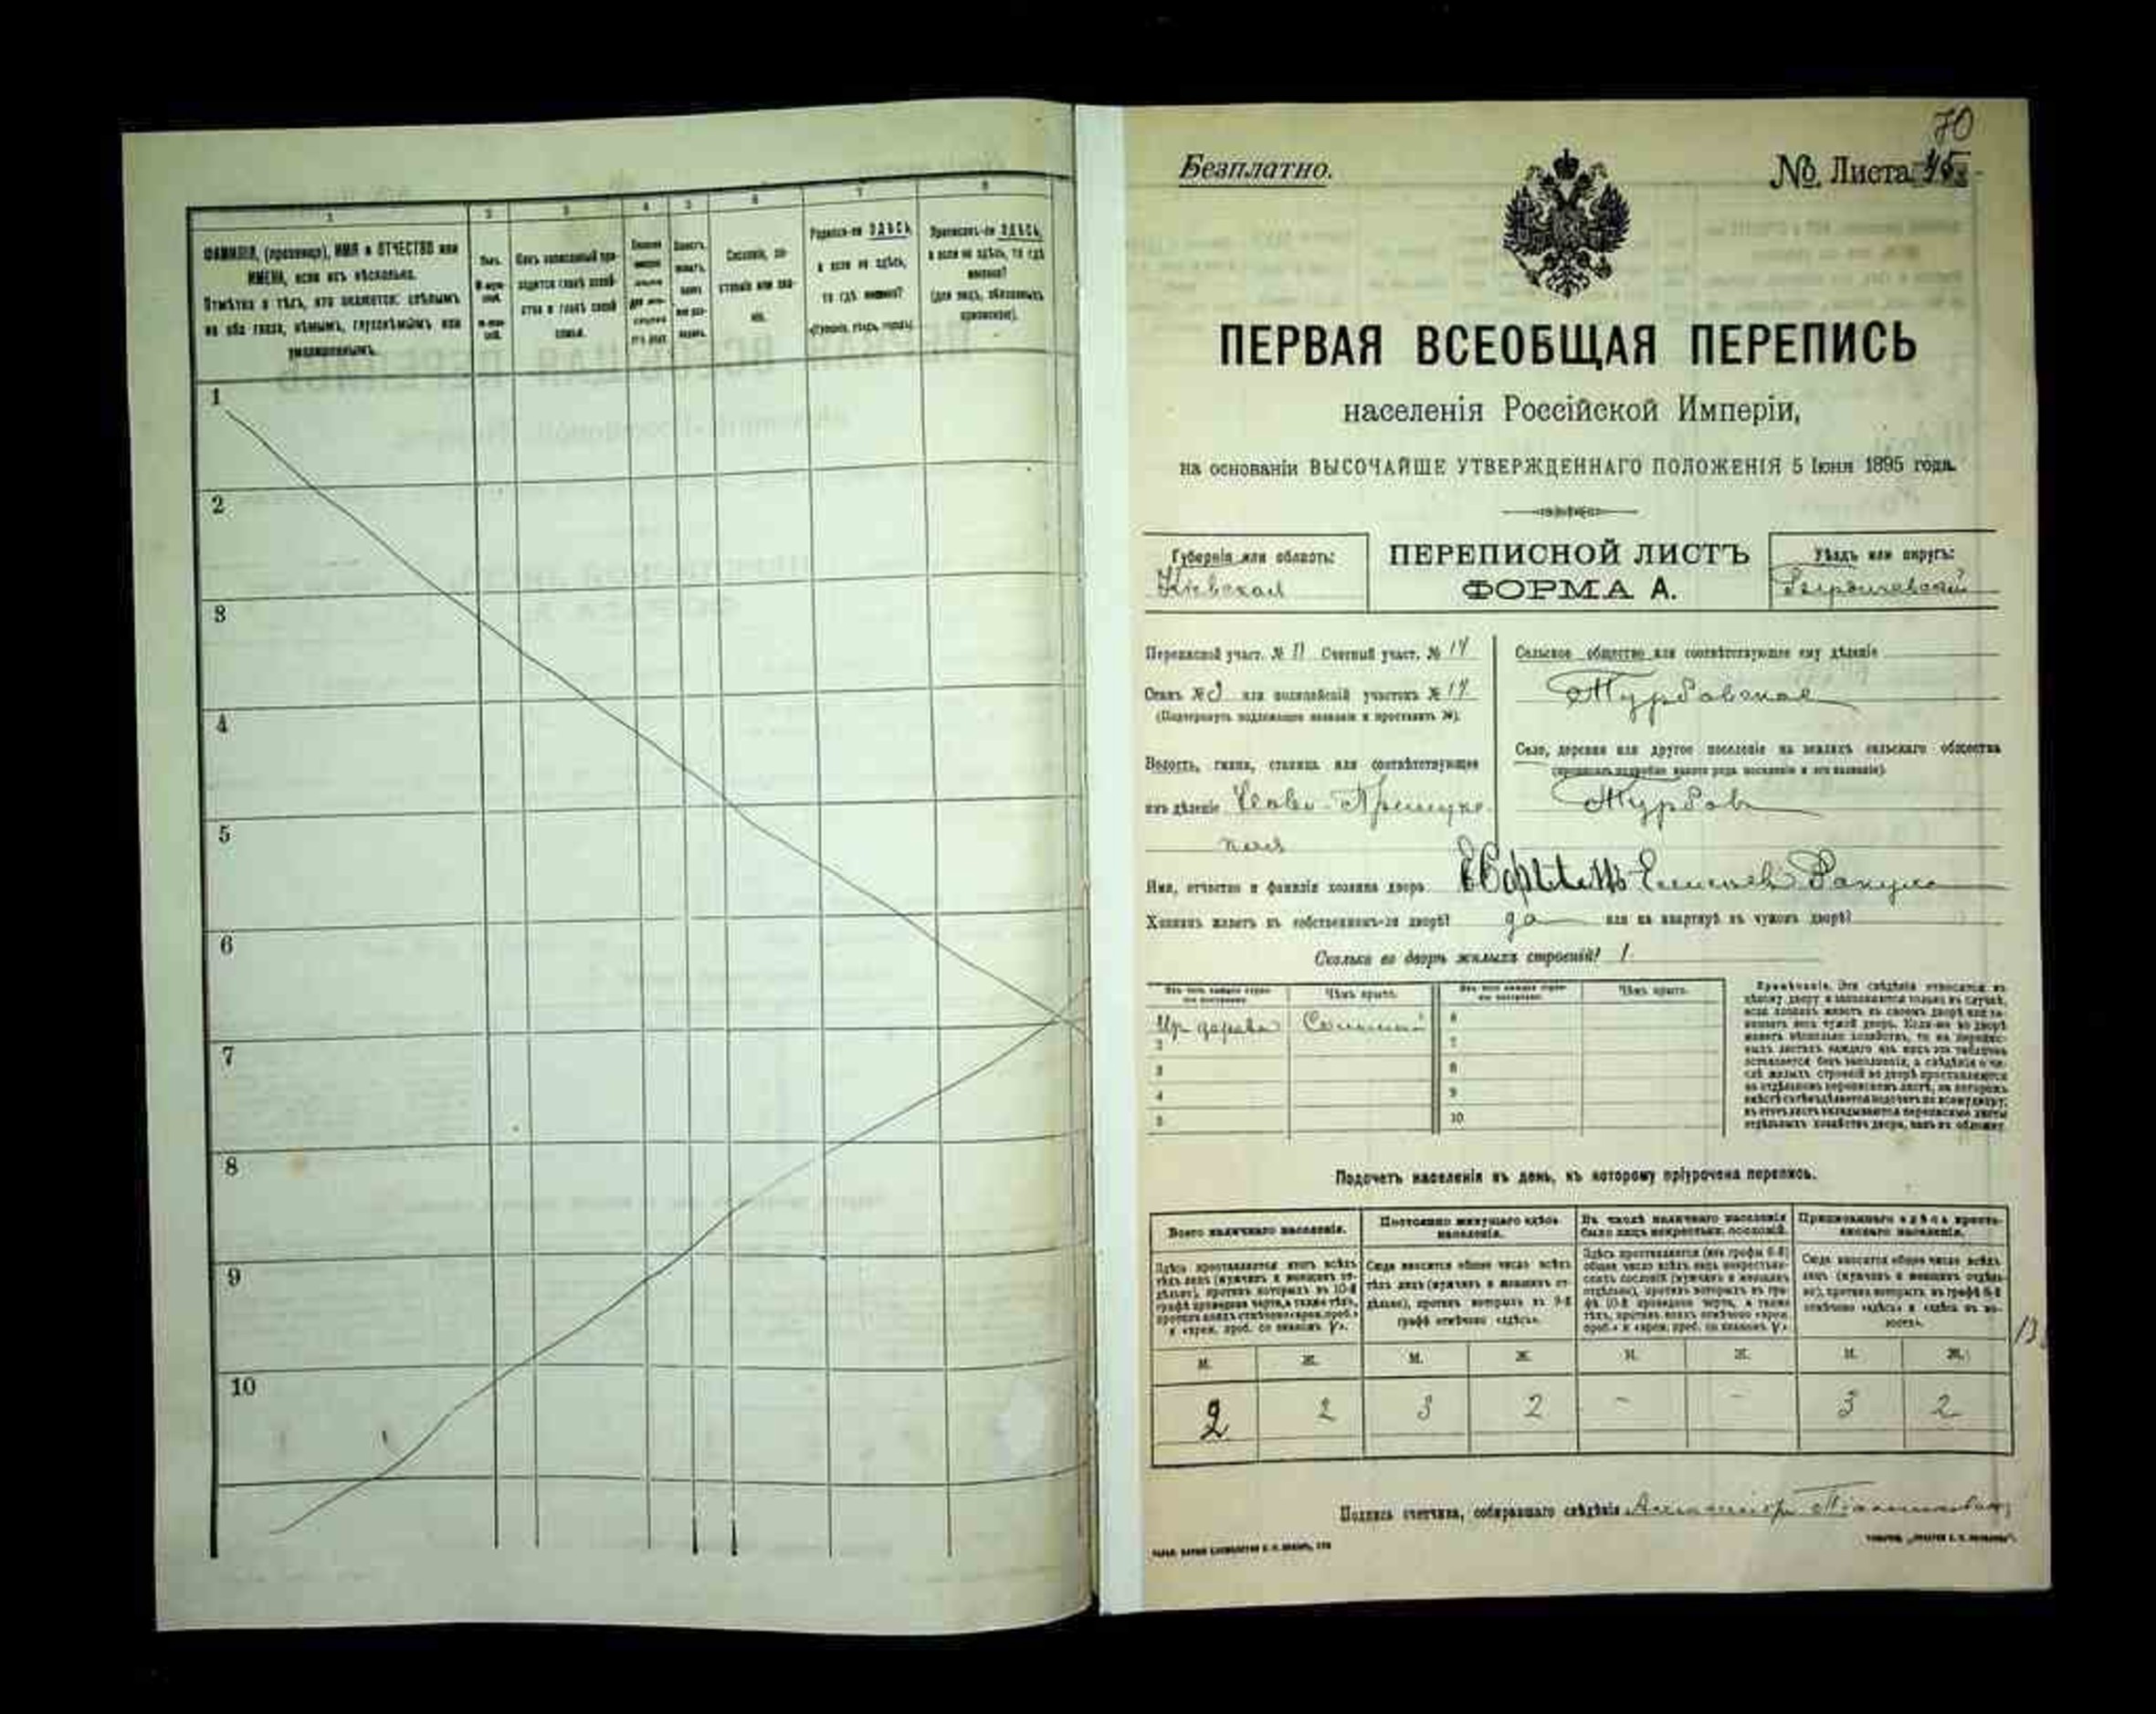 1
2
3
4
5
6
7
8
ФАМИЛІЯ, (прозвище), ИМЯ и ОТЧЕСТВО или
ИМЕНА, если ихъ нѣсколько.
Отмѣтка о тѣхъ, кто окажется: слѣпымъ
на оба глаза, нѣмымъ, глухонѣмымъ или
умалишеннымъ.
Полъ.
Какъ записанный при-
ходится главѣ хозяй-
ства и главѣ своей
семьи.
Сословіе, со-
стояніе или зва-
ніе.
Родился-ли ЗДѢСЬ,
а если не здѣсь,
то гдѣ именно?
(Губернія, уѣздъ, городъ)
Приписанъ-ли ЗДѢСЬ,
а если не здѣсь, то гдѣ
именно?
(для лицъ, обязанныхъ
припискою).
1
2
3
4
5
6
7
8
9
10
70
Безплатно.
№ Листа 45
ПЕРВАЯ ВСЕОБЩАЯ ПЕРЕПИСЬ
населенія Россійской Имперіи,
на основаніи ВЫСОЧАЙШЕ УТВЕРЖДЕННАГО ПОЛОЖЕНІЯ 5 Іюня 1895 года.
Губернія или область:
Кіевская
ПЕРЕПИСНОЙ ЛИСТЪ
ФОРМА А.
Уѣздъ или округъ:
Бердичевскій
Переписной участ. № 11 Счетный участ. № 14
Станъ № 3 или полицейскій участокъ № 14
(Подчеркнуть подлежащее названіе и проставить №).
Волость, гмина, станица или соотвѣтствующее
имъ дѣленіе
Сельское общество или соотвѣтствующее ему дѣленіе
Турбовское
Село, деревня или другое поселеніе на земляхъ сельскаго общества
(прописать подробно какого рода поселеніе и его названіе).
Турбовъ
Имя, отчество и фамилія хозяина двора
Хозяинъ живетъ въ собственномъ-ли дворѣ? да или на квартирѣ въ чужомъ дворѣ?
Сколько во дворѣ жилыхъ строеній? 1
Изъ чего каждое строе-
ніе построено.
Чѣмъ крыто.
Изъ чего каждое строе-
ніе построено.
Чѣмъ крыто.
дерева
6
2
7
3
8
4
9
5
10
Примѣчаніе. Эти свѣдѣнія относятся къ
цѣлому двору и заполняются только въ случаѣ,
если хозяинъ живетъ въ своемъ дворѣ или за-
нимаетъ весь чужой дворъ. Если-же во дворѣ
живетъ нѣсколько хозяйствъ, то на перепис-
ныхъ листахъ каждаго изъ нихъ эта табличка
оставляется безъ заполненія, а свѣдѣнія о чи-
слѣ жилыхъ строеній во дворѣ проставляются
на отдѣльномъ переписномъ листѣ, на которомъ
вмѣстѣ съ тѣмъ дѣлается подсчетъ по всему двору;
въ этотъ листъ вкладываются переписные листы
отдѣльныхъ хозяйствъ двора, какъ въ обложку.
Подсчетъ населенія въ день, къ которому пріурочена перепись.
Всего наличнаго населенія.
Постоянно живущаго здѣсь
населенія.
Въ числѣ наличнаго населенія
было лицъ некрестьян. сословій.
Приписаннаго здѣсь кресть-
янскаго населенія.
Здѣсь проставляется итогъ всѣхъ
тѣхъ лицъ (мужчинъ и женщинъ от-
дѣльно), противъ которыхъ въ 10-й
графѣ проведена черта, а также тѣхъ,
противъ коихъ отмѣчено «врем. проб.»
и «врем. проб. со знакомъ V».
Сюда вносится общее число всѣхъ
тѣхъ лицъ (мужчинъ и женщинъ от-
дѣльно), противъ которыхъ въ 9-й
графѣ отмѣчено «здѣсь».
Здѣсь проставляется (изъ графы 6-й)
общее число всѣхъ лицъ некрестьян-
скихъ сословій (мужчинъ и женщинъ
отдѣльно), противъ которыхъ въ гра-
фѣ 10-й проведена черта, а также
тѣхъ, противъ коихъ отмѣчено «врем.
проб.» и «врем. проб. со знакомъ V».
Сюда вносится общее число всѣхъ
лицъ (мужчинъ и женщинъ отдѣль-
но), противъ которыхъ въ графѣ 8-й
отмѣчено «здѣсь» и «здѣсь въ во-
лости».
М. Ж. М. Ж. М. Ж. М. Ж.
2 2 3 2 - - 3 2
Подпись счетчика, собиравшаго свѣдѣнія